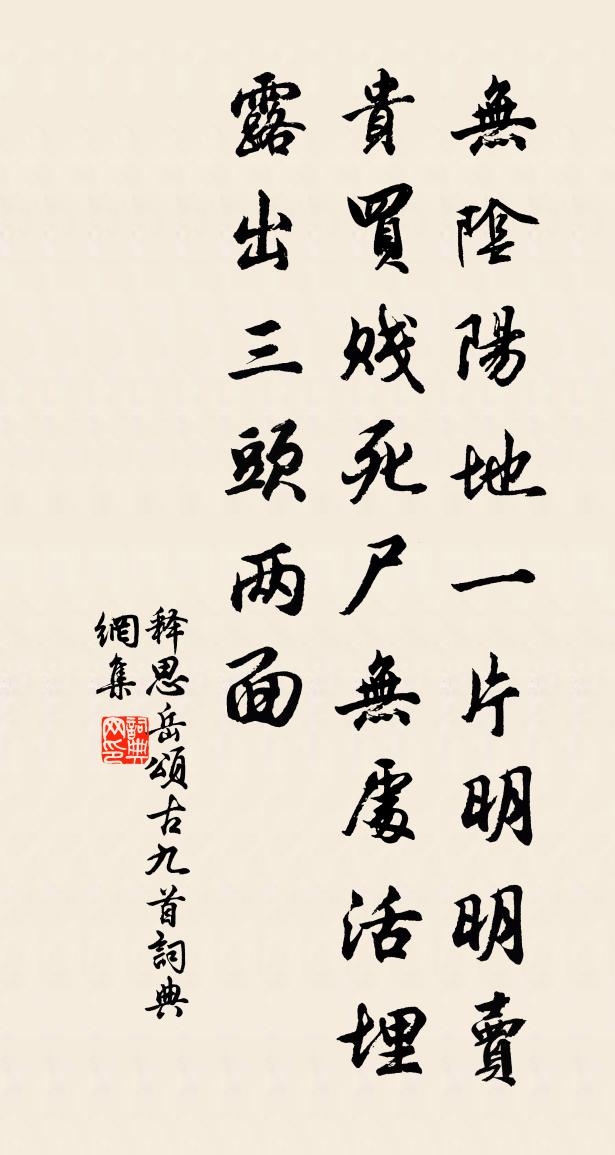 無陰陽地一片明明賣
貴買賤死尸無處活埋
露出三頭两面
释思岳頌古九首詞典
網集
詞典网印